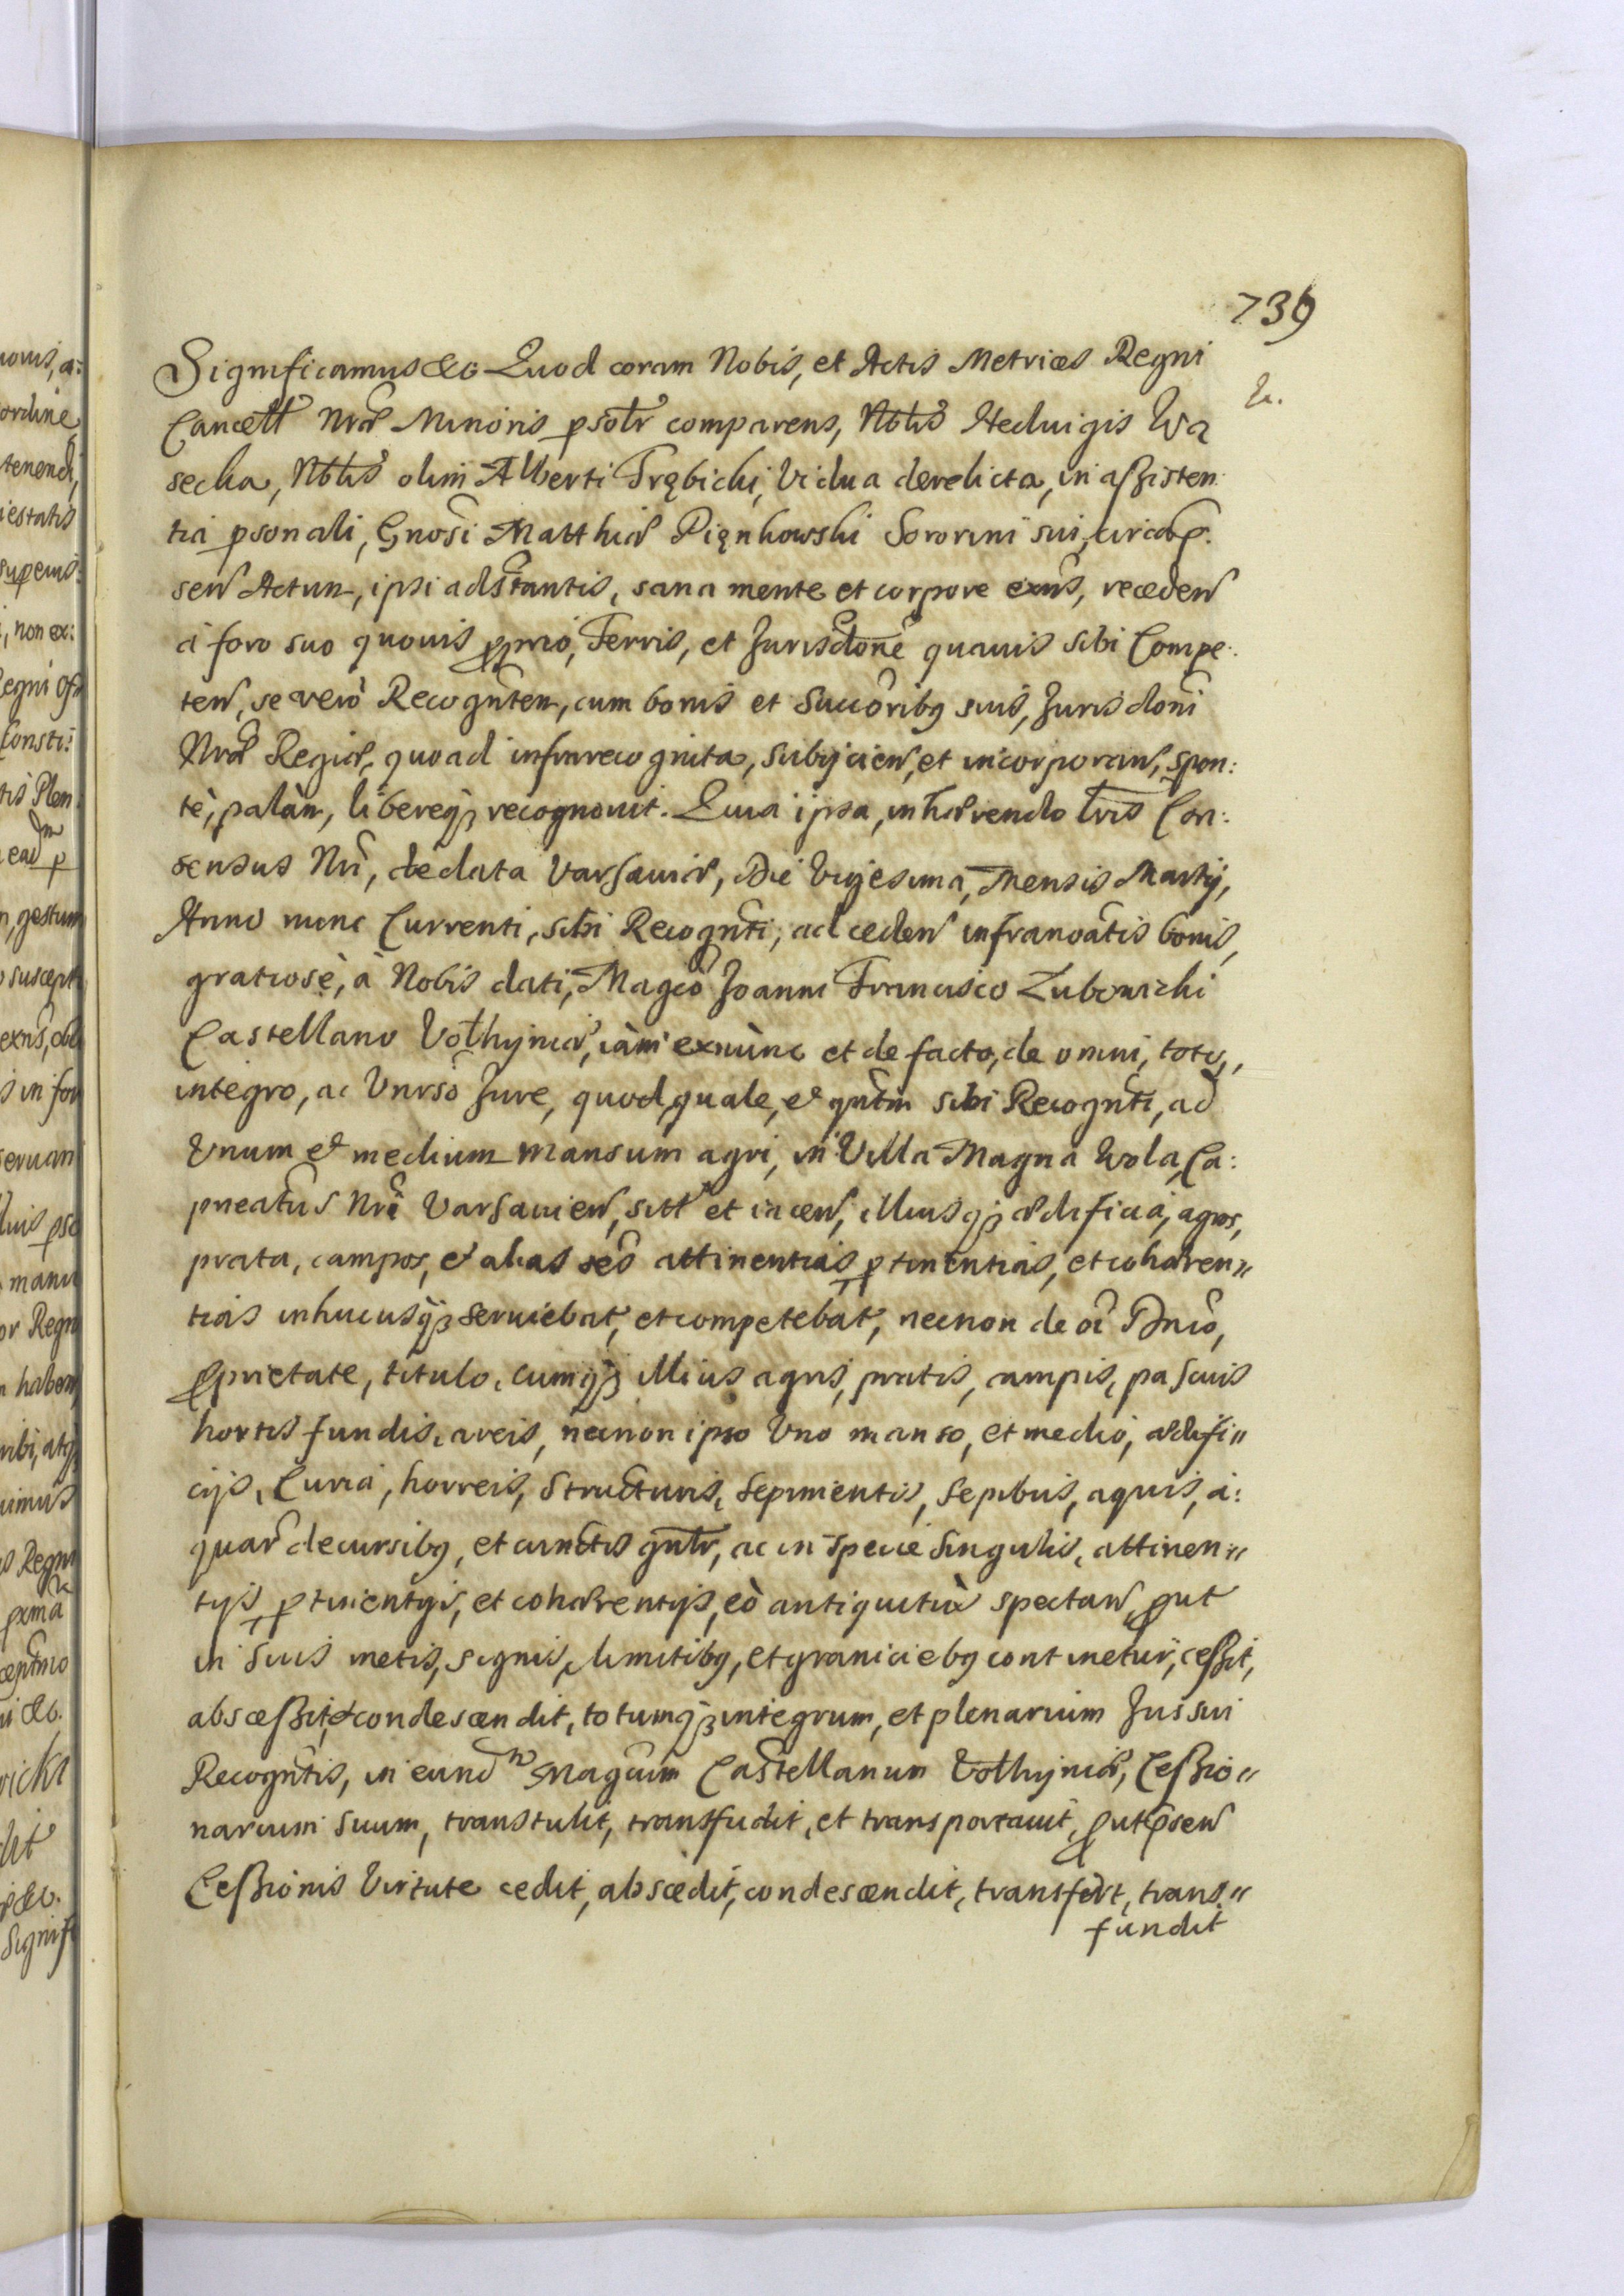 739
Significamus &c Quod coram Nobis, et Actis Metrices Regni
Cancell Nræ Minoris psolr comparens, Nblis Heduigis Wą
secka, Nblis olim Alberti Trębicki, Vidua derelicta, in assisten
tia psonali, Gnosi Matthiæ Pięnkowski Sororini sui, circa p.
sen Actum, ipsi adstantis, sana mente et corpore exns, receden
à foro suo quouis pprio, Terris, et Jurisdone quauis sibi Compe:
ten, se verò Recognten, cum bonis et Succoribq suis, Jurisdoni
Nræ Regiæ, quoad infrarecognita, subijcien, et incorporan, spon:
tè, palàm, libereqз recognouit. Quia ipsa, inhærendo lris Con:
sensus Nri, de data Varsauiæ, Die Vigesima, Mensis Martij,
Anno nunc Currenti, sibi Recognti, ad ceden infranoatis bonis,
gratiosè, à Nobis dati, Magco Joanni Francisco Lubowicki
Castellano Volhyniæ, iàm exnùnc et de facto, de omni, toto,
integro, ac Vnrso Jure, quod, quale, et qntm sibi Recognti, ad
Vnum et medium mansum agri, in Villa Magna Wola, Ca:
pneatus Nri Varsauien, sitt et iacen, illiusqз ædificia, agros,
prata, campos, et alias ses attinentias ptinentias, et cohæren"
tias inhucusqз seruiebat, et competebat, necnon de oi Dnio,
pprietate, titulo, cumqз illius agris, pratis, campis, pascuis
hortis fundis, areis, necnon ipso Vno manso, et medio, ædifi"
cijs, Curia, horreis, Structuris, Sepimentis, Sepibus, aquis, a:
quar decursibq, et cunctis gnlr, ac in specie singulis, attinen"
tijs ptinentijs, et cohærentijs, eò antiquitùs spectan, put
in suis metis, signis, limitibq, et graniciebq continetur, cessit,
abscessit, et condescendit, totumqз integrum, et plenarium Jus sui
Recogntis, in eundm Magcum Castellanum Volhyniæ, Cessio"
narium suum, transtulit, transfudit, et transportauit, put psen
Cessionis Virtute cedit, abscedit, condescendit, transfert, trans"
fundit